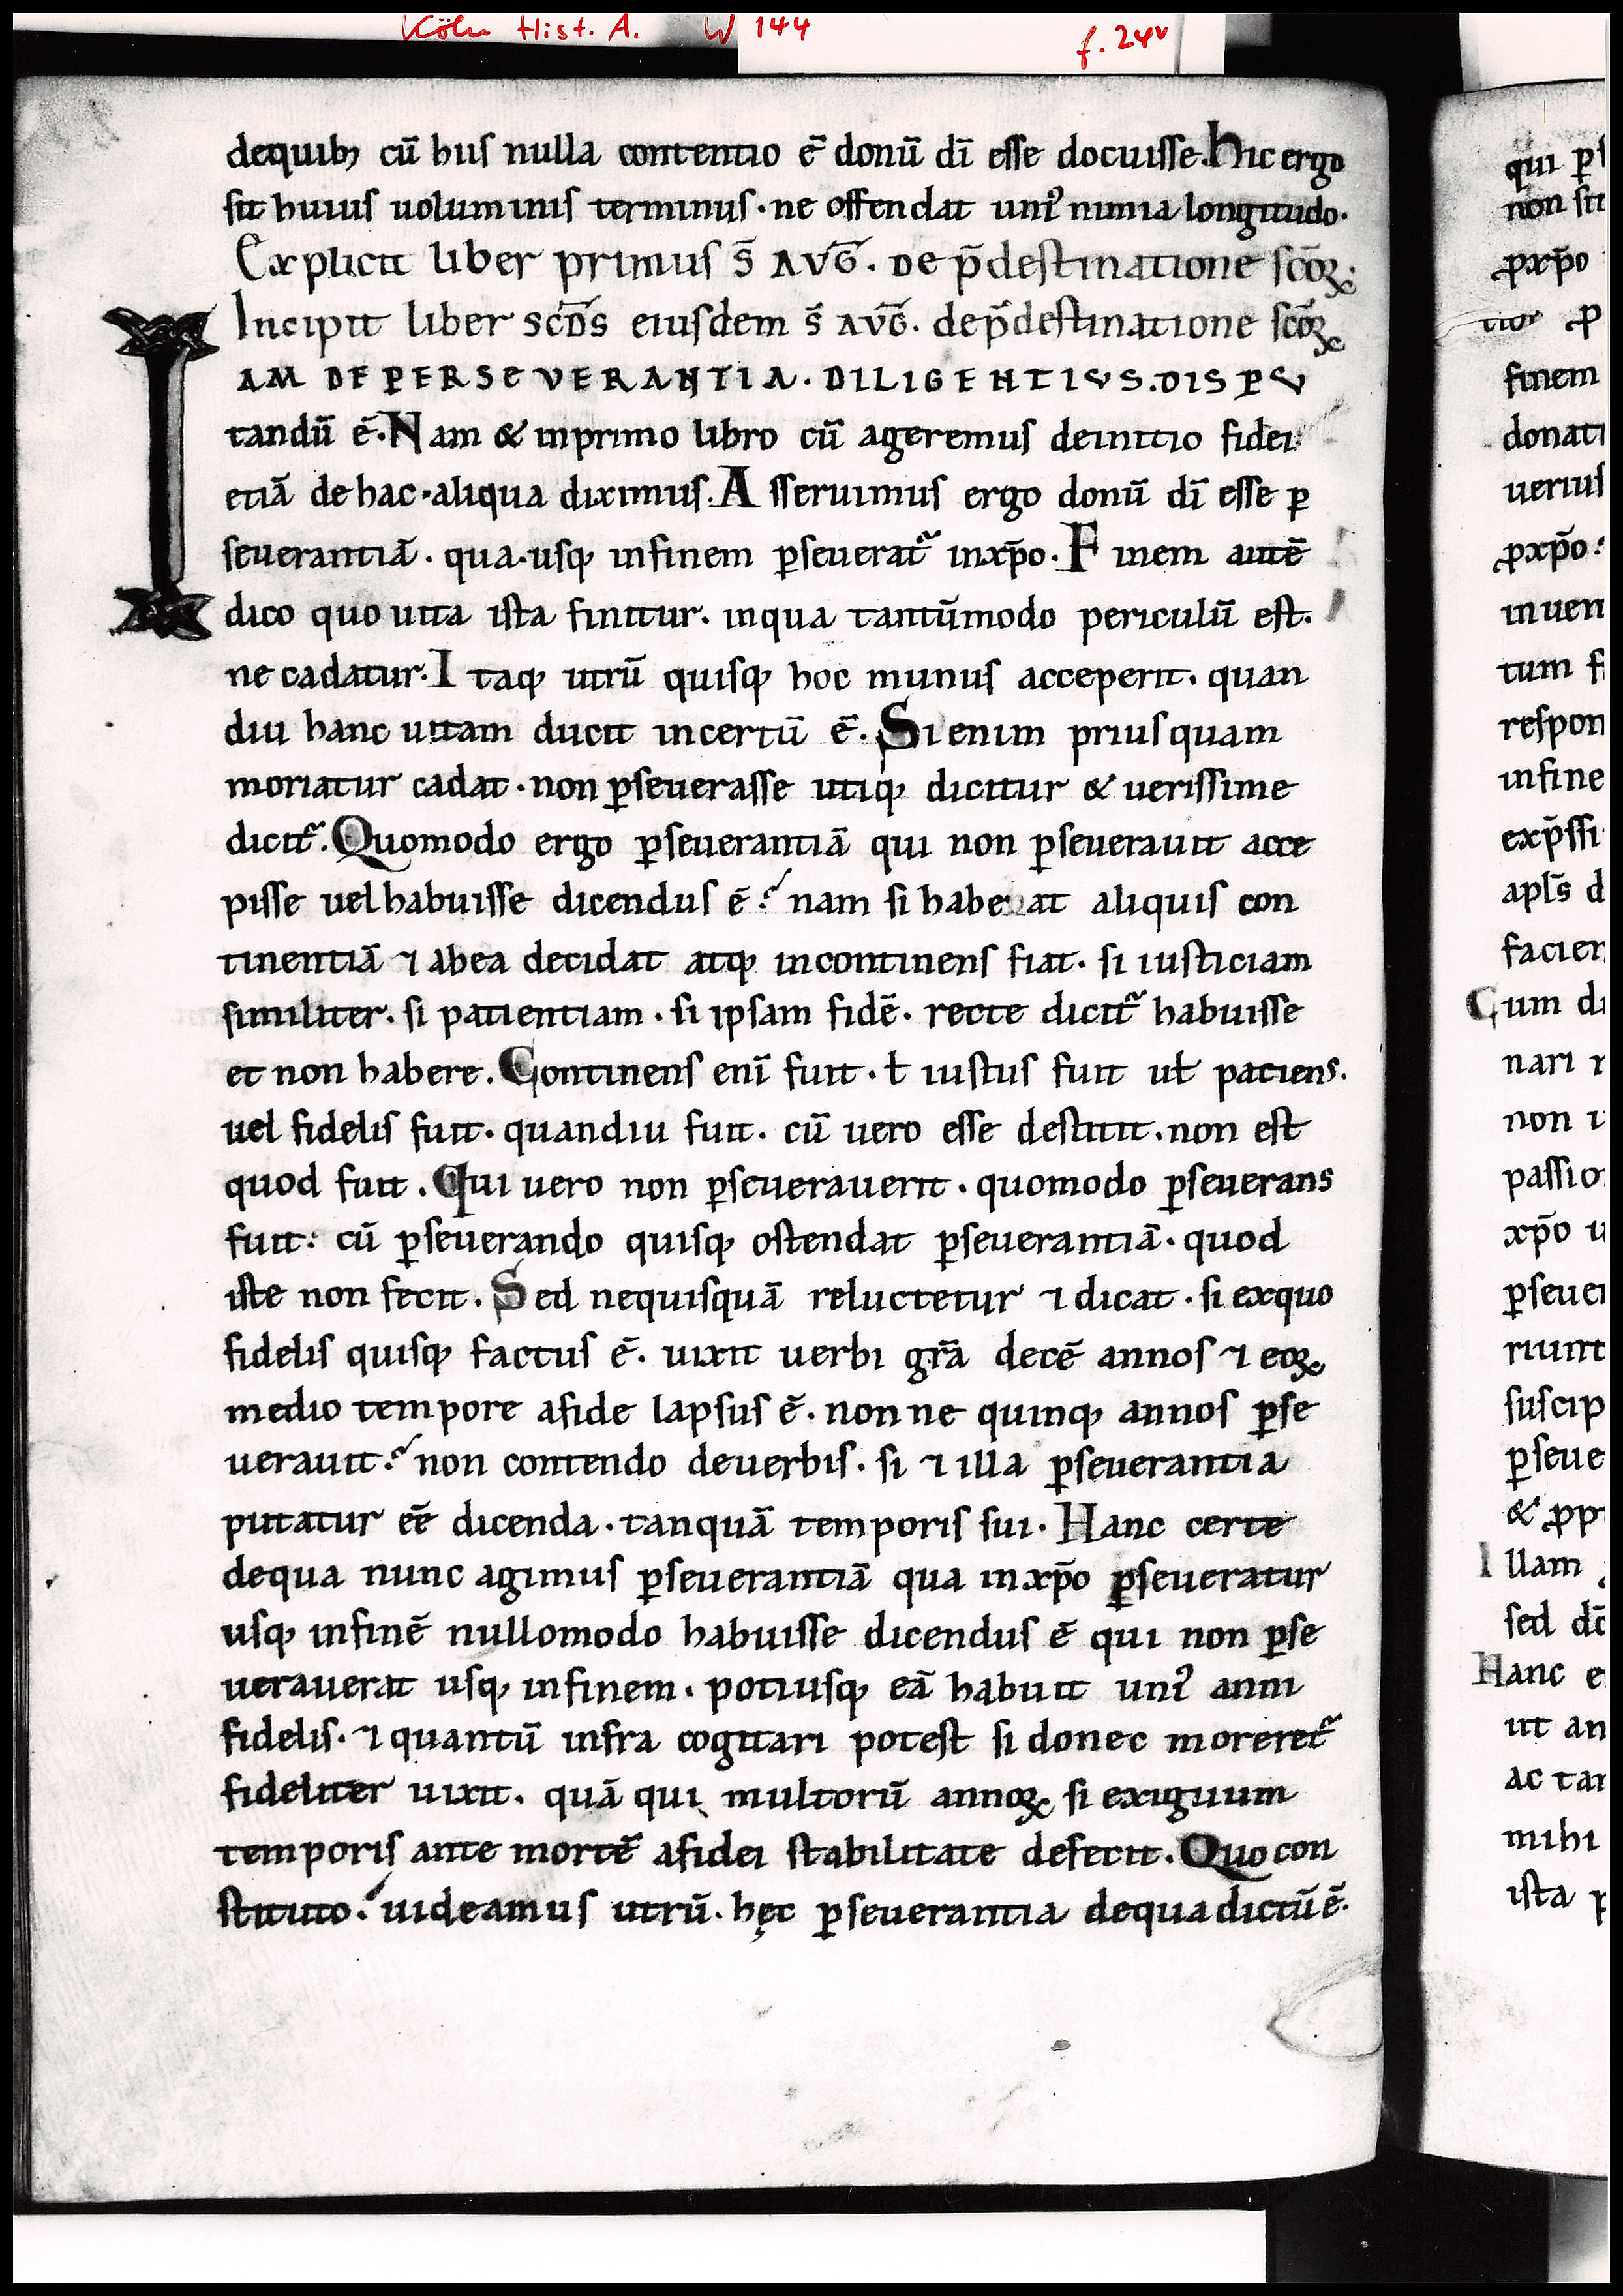 Köln Hist. A. W 144
f. 24v
dequibꝫ cū hiis nulla contentio ē donū dī esse docuisse. Hic ergo
sit huius uoluminis terminus · ne offendat unꝰ nimia longitudo ·
Explicit liber primus S̄ AVḠ. De p̄destinatione scōꝝ.
Incipit liber SCDS̄ eiusdem S̄ AVḠ. de p̄destinatione scōꝝ
IAM DE PERSEVERANTIA. DILIGENTIVS. DISPV
tandū ē. Nam & inprimo libro cū ageremus deinitio fidei
etiā de hac · aliqua diximus. Asseruimus ergo donū dī esse ꝑ
seuerantiā. qua · usqꝫ infinem ꝑseuerat᷑ inxp̄o. Finem autē
dico quo uita ista finitur. inqua tantūmodo periculū est.
ne cadatur. Itaqꝫ utrū quisqꝫ hoc munus acceperit. quan
diu hanc uitam ducit incertū ē. Si enim priusquam
moriatur cadat · non ꝑseuerasse utiqꝫ dicitur & uerissime
dicit᷑. Quomodo ergo ꝑseuerantiā qui non ꝑseuerauit acce
pisse uel habuisse dicendus ē? nam si habe at aliquis con
tinentiā ⁊ abea decidat atqꝫ incontinens fiat. si iusticiam
similiter. si patientiam. si ipsam fidē. recte dicit᷑ habuisse
et non habere. Continens enī fuit. ł iustus fuit uł paciens.
uel fidelis fuit. quandiu fuit. cū uero esse destitit. non est
quod fuit. Qui uero non ꝑseuerauerit. quomodo ꝑseuerans
fuit: cū ꝑseuerando quisqꝫ ostendat ꝑseuerantiā. quod
iste non fecit. Sed nequisquā reluctetur ⁊ dicat. si exquo
fidelis quisqꝫ factus ē. uixit uerbi gr̄a decē annos ⁊ eoꝝ
medio tempore afide lapsus ē. nonne quinqꝫ annos ꝑse
uerauit? non contendo deuerbis. si ⁊ illa ꝑseuerantia
putatur eē dicenda. tanquā temporis sui. Hanc certe
dequa nunc agimus ꝑseuerantiā qua inxp̄o ꝑseueratur
usqꝫ infinē nullomodo habuisse dicendus ē qui non ꝑse
uerauerat usqꝫ infinem. potiusqꝫ eā habuit unꝰ anni
fidelis. ⁊ quantū infra cogitari potest si donec moreret᷑
fideliter uixit. quā qui multorū annoꝝ si exiguum
temporis ante mortē afidei stabilitate defecit. Quo con
stituto. uideamus utrū. hęc ꝑseuerantia dequa dictū ē.
qui
non
ꝓxp̄o
finem
uerius
ꝓxp̄o
tum
infine
Cum
nari
non
xp̄o
Hanc
ut an
ac
mihi
ista